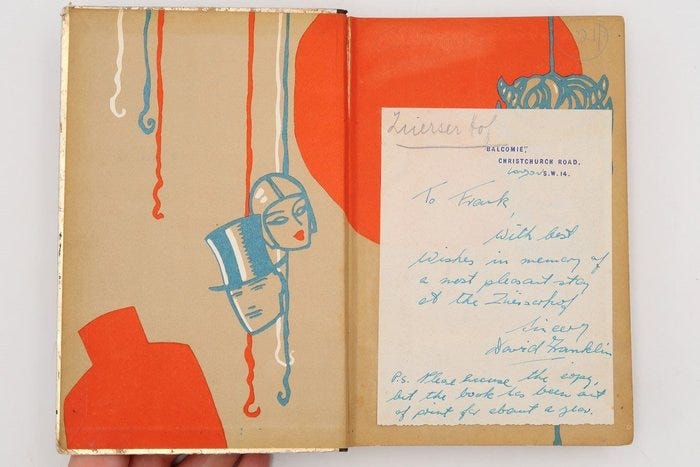 Zürserhof
BALCOMIE,
CHRISTCHURCH ROAD,
London S.W. 14.
To Frank,
With best
Wishes in memory of
a most pleasant stay
at the Zürserhof
Sincerely
David Franklin
P.s. Please excuse the copy,
but the book has been out
of print for about a year.